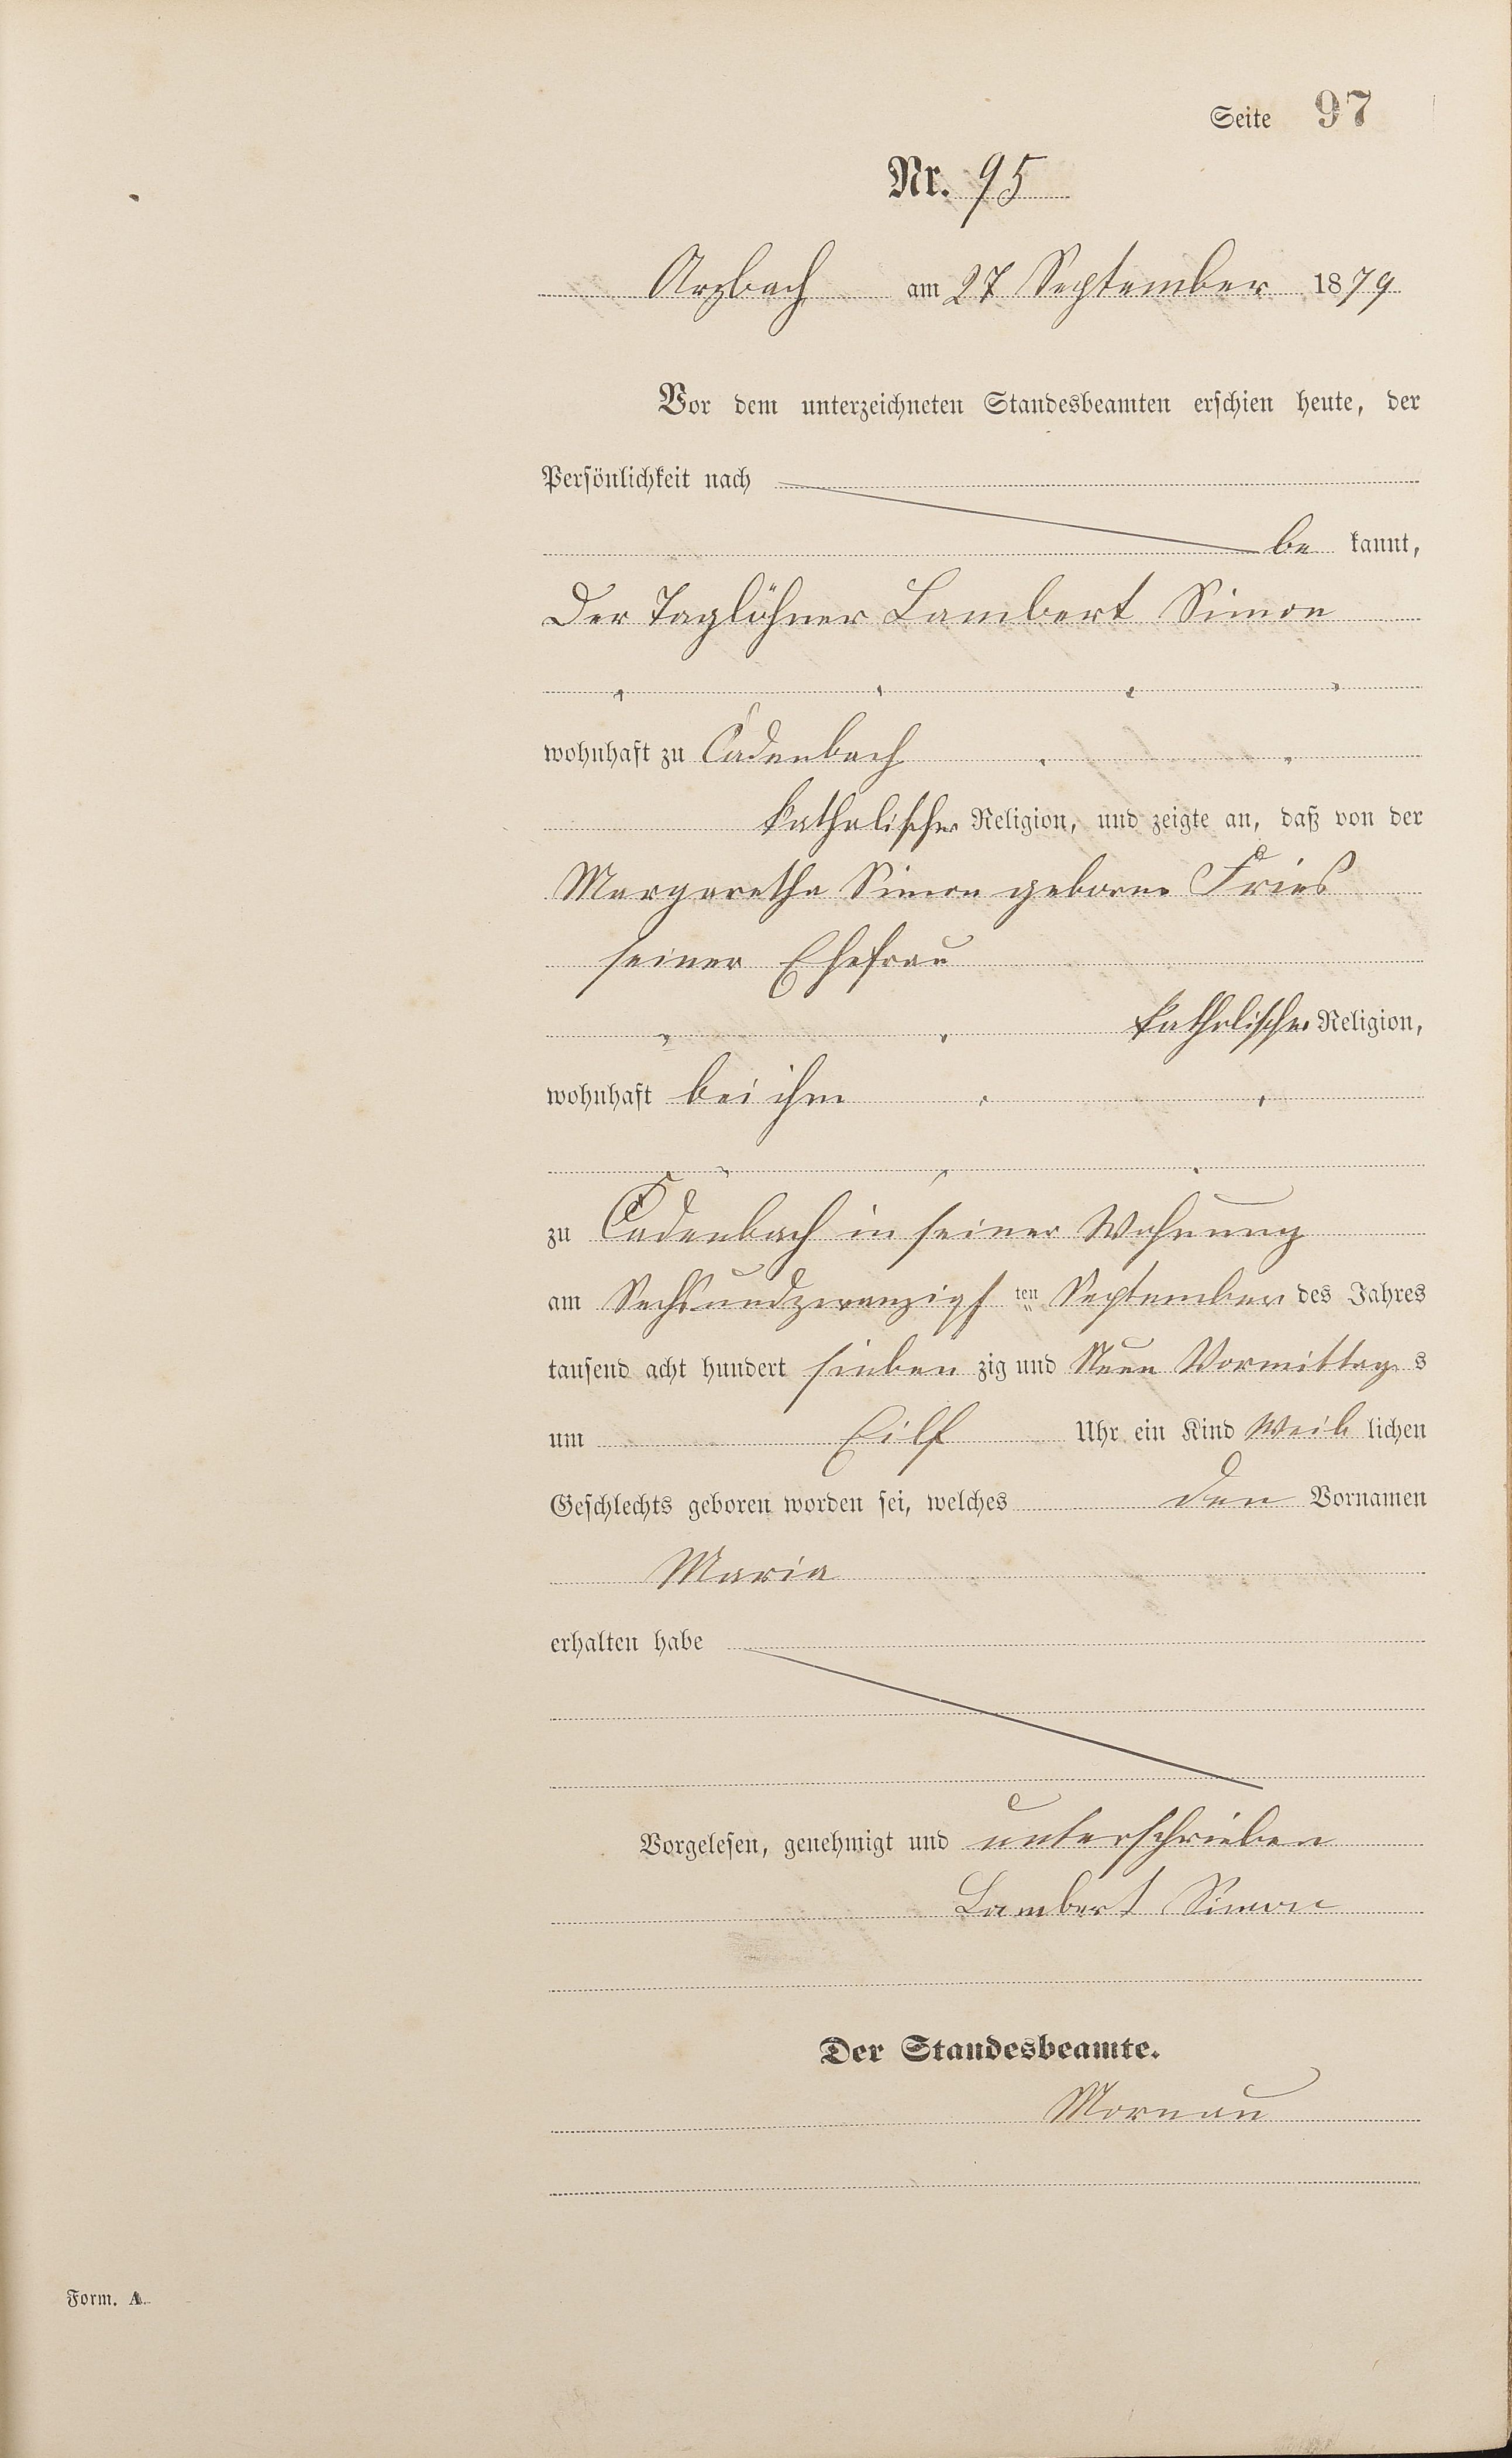 Seite 97
Nr. 95
Arzbach am 27 September 1879
Vor dem unterzeichneten Standesbeamten erschien heute, der
Persönlichkeit nach
be kannt,
Der Taglöhner Lambert Simon
wohnhaft zu Cadenbach
katholischer Religion, und zeigte an, daß von der
Margaretha Simon geborne Fries
seiner Ehefrau
katholischer Religion,
wohnhaft bei ihm
zu Cadenbach in seiner Wohnung
am Sechsundzwanzigs ten September des Jahres
tausend acht hundert sieben zig und Neun Vormittag s
um Eilf Uhr ein Kind Weib lichen
Geschlechts geboren worden sei, welches den Vornamen
Maria
erhalten habe
Vorgelesen, genehmigt und unterschrieben
Lambert Simon
Der Standesbeamte.
Mornau
Form. A.